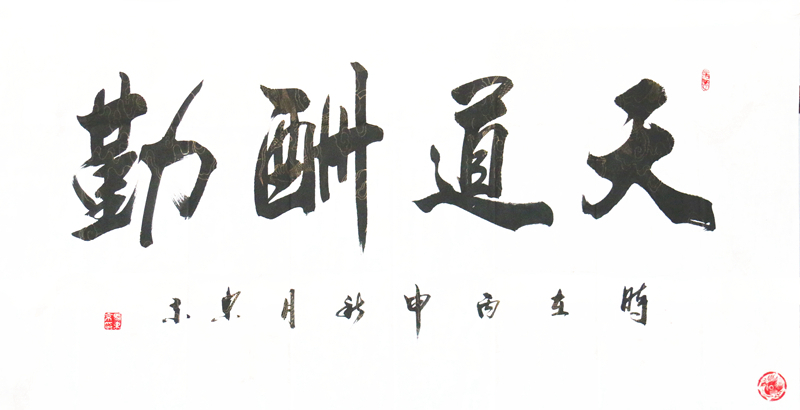 天道酬勤
時在丙申秋月